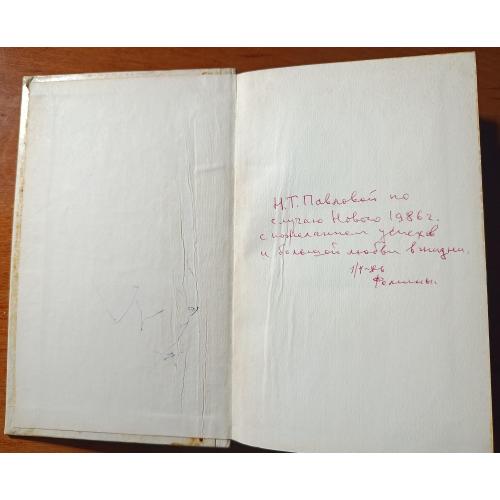 Н.Т. Павловой по
случаю Нового 1986 г.
с пожеланием успехов
и большой любви в жизни.
1/I-86
Фомины.